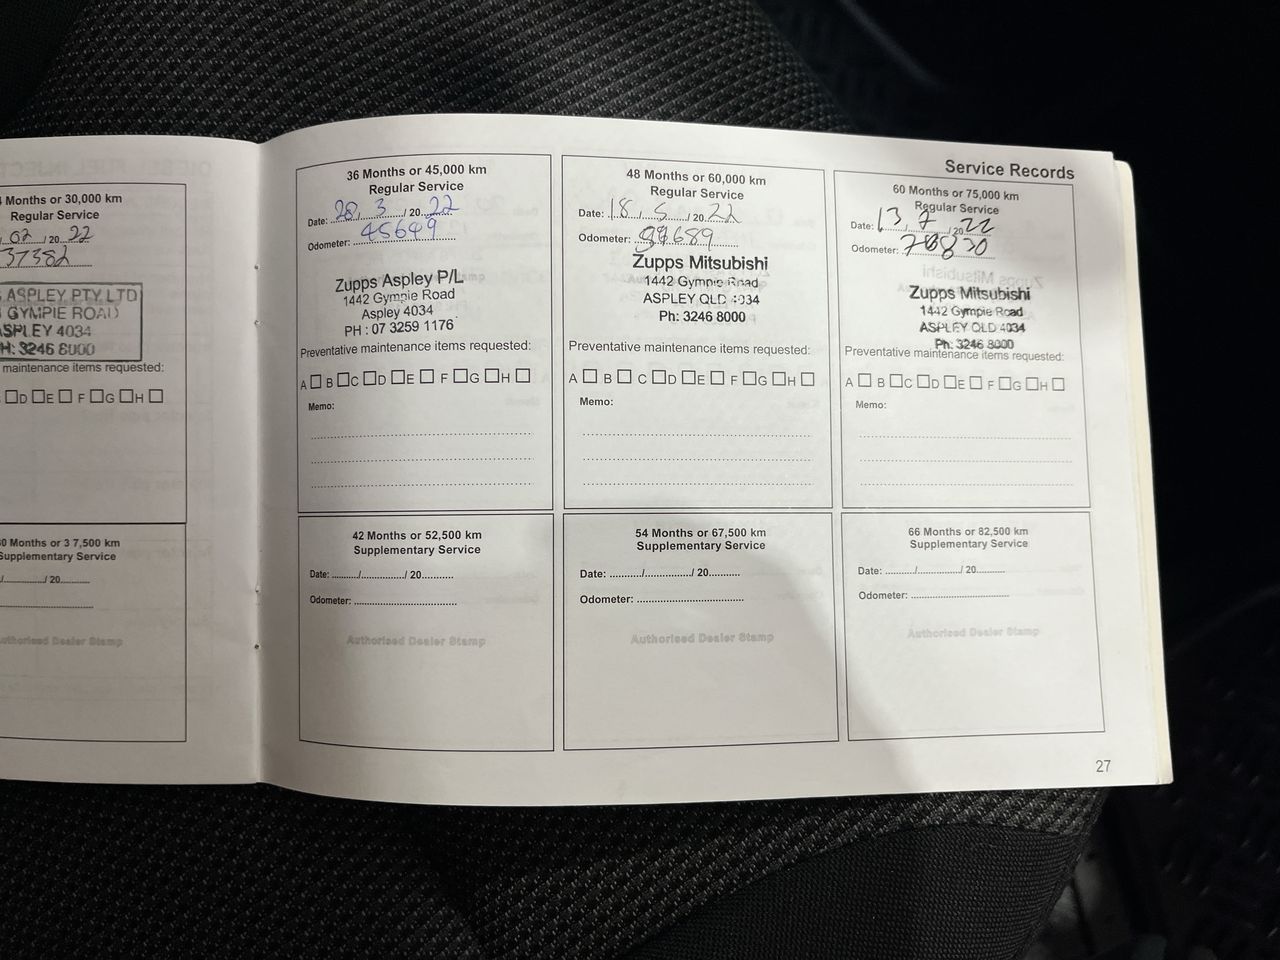 Months or 30,000 km
Regular Service
02 / 20 22
37382
ASPLEY PTY LTD
GYMPIE ROAD
ASPLEY 4034
H: 3246 8000
maintenance items requested:
D E F G H
7,500 km
Supplementary Service
/ / 20
Authorised Dealer Stamp
Service Records
36 Months or 45,000 km
Regular Service
Date: 28, 3 / 20 22
Odometer: 45649
Zupps Aspley P/L
1442 Gympie Road
Aspley 4034
PH : 07 3259 1176
Preventative maintenance items requested:
A B C D E F G H
Memo:
42 Months or 52,500 km
Supplementary Service
Date: / / 20
Odometer:
Authorised Dealer Stamp
48 Months or 60,000 km
Regular Service
Date: 18 , 5 / 20 22
Odometer:
Zupps Mitsubishi
1442 Gympie Road
ASPLEY QLD 4034
Ph: 3246 8000
Preventative maintenance items requested:
A B C D E F G H
Memo:
54 Months or 67,500 km
Supplementary Service
Date: / / 20
Odometer:
Authorised Dealer Stamp
60 Months or 75,000 km
Regular Service
Date: 13, 7 / 20 22
Odometer:
Zupps Mitsubishi
1442 Gympie Road
ASPLEY QLD 4034
Ph: 3246 8000
Preventative maintenance items requested:
A B C D E F G H
Memo:
66 Months or 82,500 km
Supplementary Service
Date: / / 20
Odometer:
Authorised Dealer Stamp
27